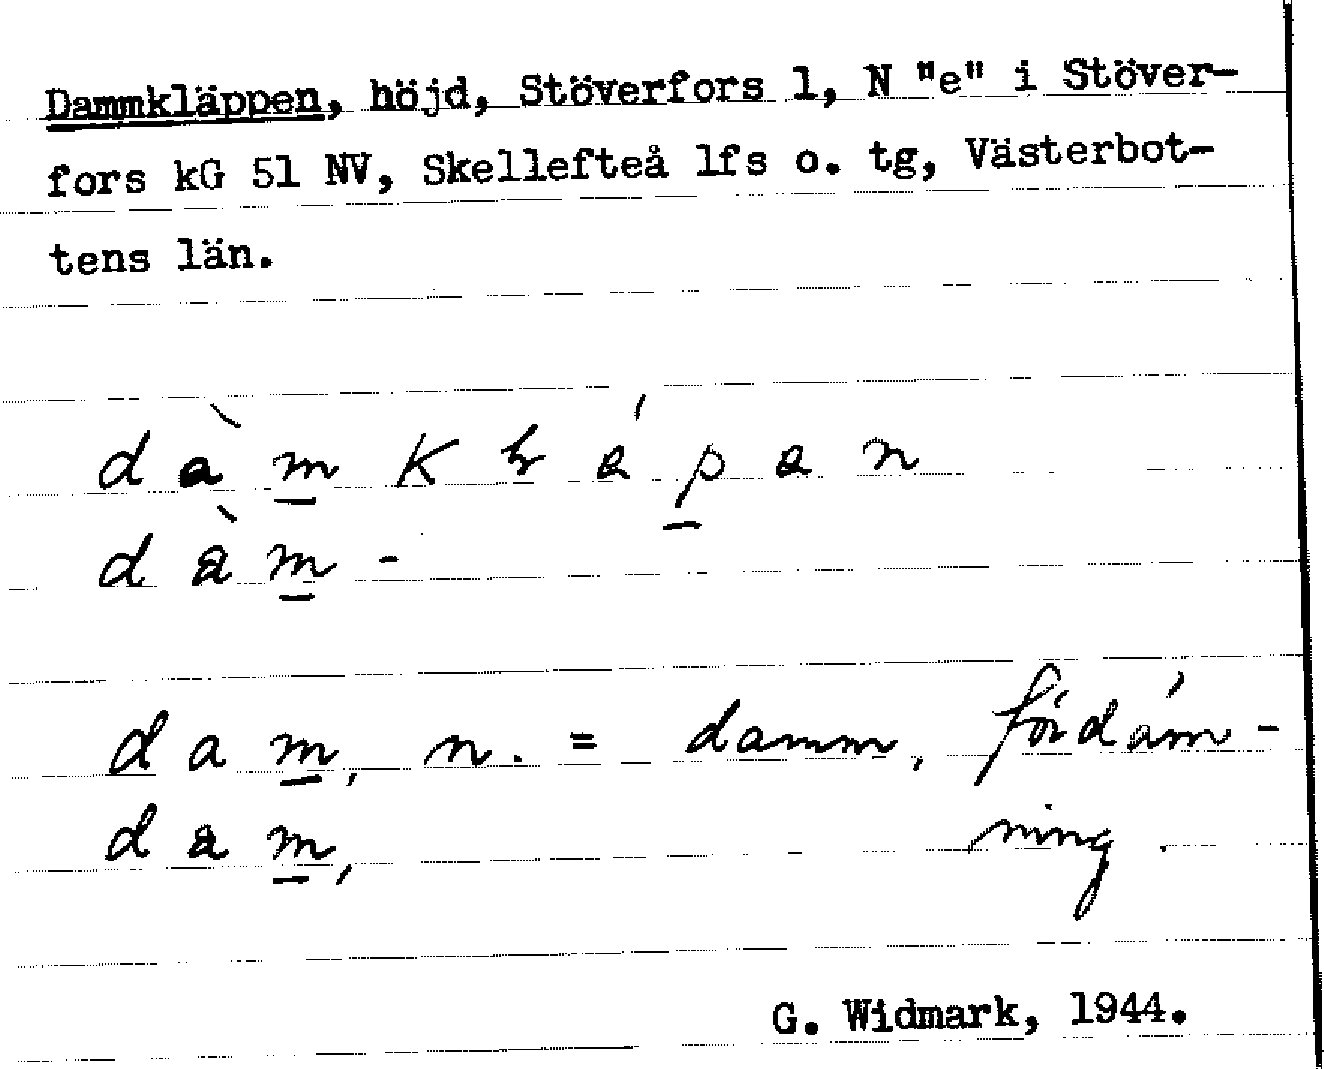 Dammkläppen, höjd, Stöverfors 1, N "e" i Stöver-
fors kG 51 NV, Skellefteå lfs o. tg, Västerbot-
tens län.
dam, n. = damm, fördäm-
dam, ning.
G. Widmark, 1944.